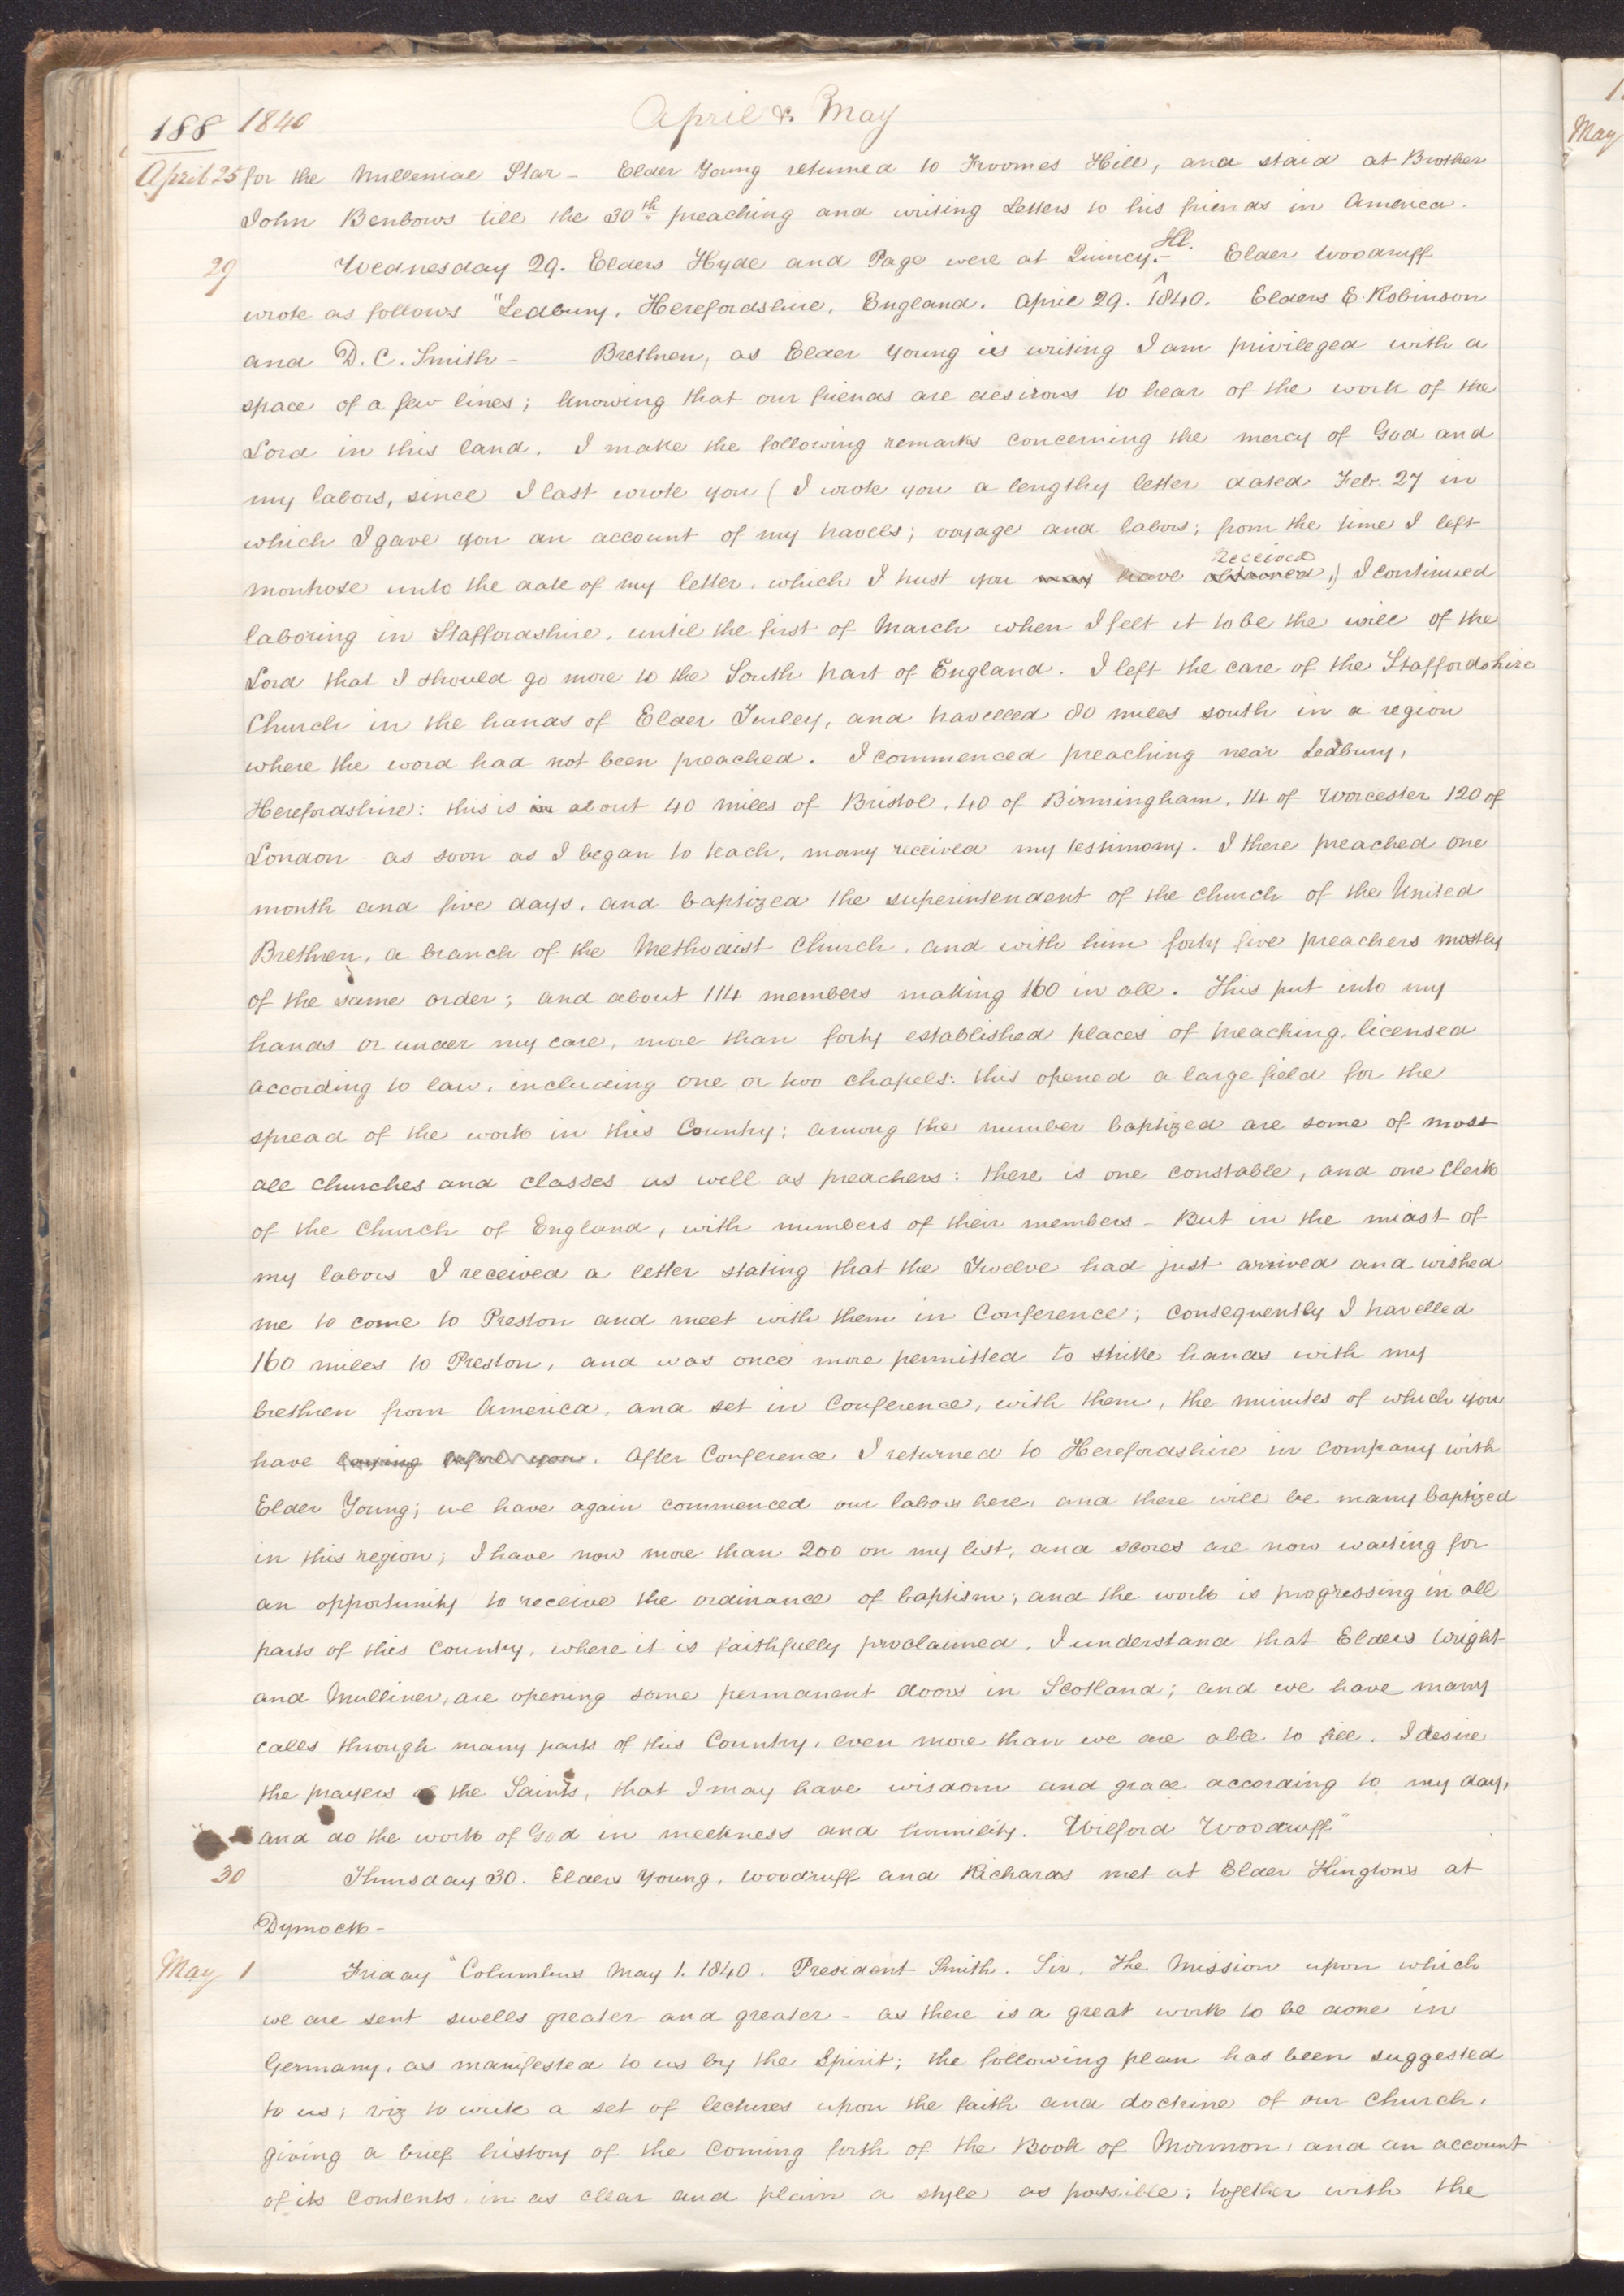 188 1840 April & May
April 25 for the Millenial Star – Elder Young returned to Froomes Hill, and staid at Brother
John Benbows till the 30th preaching and writing Letters to his friends in America.
29 Wednesday 29. Elders Hyde and Page were at Quincy. Ill. – Elder Woodruff
wrote as follows "Ledbury, Herefordshire, England. April 29. 1840. Elders E. Robinson
and D. C. Smith – Brethren, as Elder Young is writing I am privileged with a
space of a few lines; knowing that our friends are desirous to hear of the work of the
Lord in this land, I make the following remarks concerning the mercy of God and
my labors, since I last wrote you (I wrote you a lengthy letter dated Feb. 27 in
which I gave you an account of my travels; voyage and labors; from the time I left
Montrose unto the date of my letter, which I trust you may have obtained received,) I continued
laboring in Staffordshire, until the first of March when I felt it to be the will of the
Lord that I should go more to the South part of England. I left the care of the Staffordshire
Church in the hands of Elder Turley, and travelled 80 miles south in a region
where the word had not been preached. I commenced preaching near Ledbury,
Herefordshire: this is in about 40 miles of Bristol, 40 of Birmingham, 14 of Worcester 120 of
London as soon as I began to teach, many received my testimony. I there preached one
month and five days, and baptized the superintendent of the church of the United
Brethren, a branch of the Methodist Church, and with him forty five preachers mostly
of the same order; and about 114 members making 160 in all. This put into my
hands or under my care, more than forty established places of preaching, licensed
according to law, including one or two chapels: this opened a large field for the
spread of the work in this Country: among the number baptized are some of most
all churches and classes as well as preachers: there is one constable, and one Clerk
of the Church of England, with numbers of their members – But in the midst of
my labors I received a letter stating that the Twelve had just arrived and wished
me to come to Preston and meet with them in Conference; consequently I travelled
160 miles to Preston, and was once more permitted to strike hands with my
brethren from America, and set in Conference, with them, the minutes of which you
have laying before you. After Conference I returned to Herefordshire in company with
Elder Young; we have again commenced our labors here, and there will be many baptized
in this region; I have now more than 200 on my list, and scores are now waiting for
an opportunity to receive the ordinance of baptism; and the work is progressing in all
parts of this country, where it is faithfully proclaimed. I understand that Elders Wright
and Mulliner, are opening some permanent doors in Scotland; and we have many
calls through many parts of this Country, even more than we are able to fill. I desire
the prayers of the Saints, that I may have wisdom and grace according to my day,
and do the work of God in meekness and humility. Wilford Woodruff"
30 Thursday 30. Elders Young, Woodruff and Richards met at Elder Kington's at
Dymock –
May 1 Friday "Columbus May 1. 1840. President Smith. Sir. The Mission upon which
we are sent swells greater and greater – as there is a great work to be done in
Germany, as manifested to us by the Spirit; the following plan has been suggested
to us; viz to write a set of lectures upon the faith and doctrine of our church,
giving a brief history of the coming forth of the Book of Mormon, and an account
of its contents in as clear and plain a style as possible; together with the
May